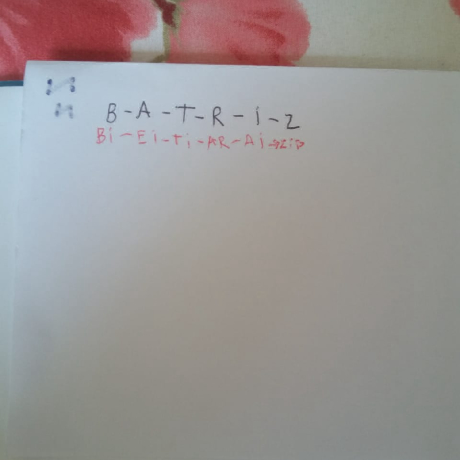 B-A-T-R-i-Z
Bi-Ei-Ti-AR-Ai→Zi→